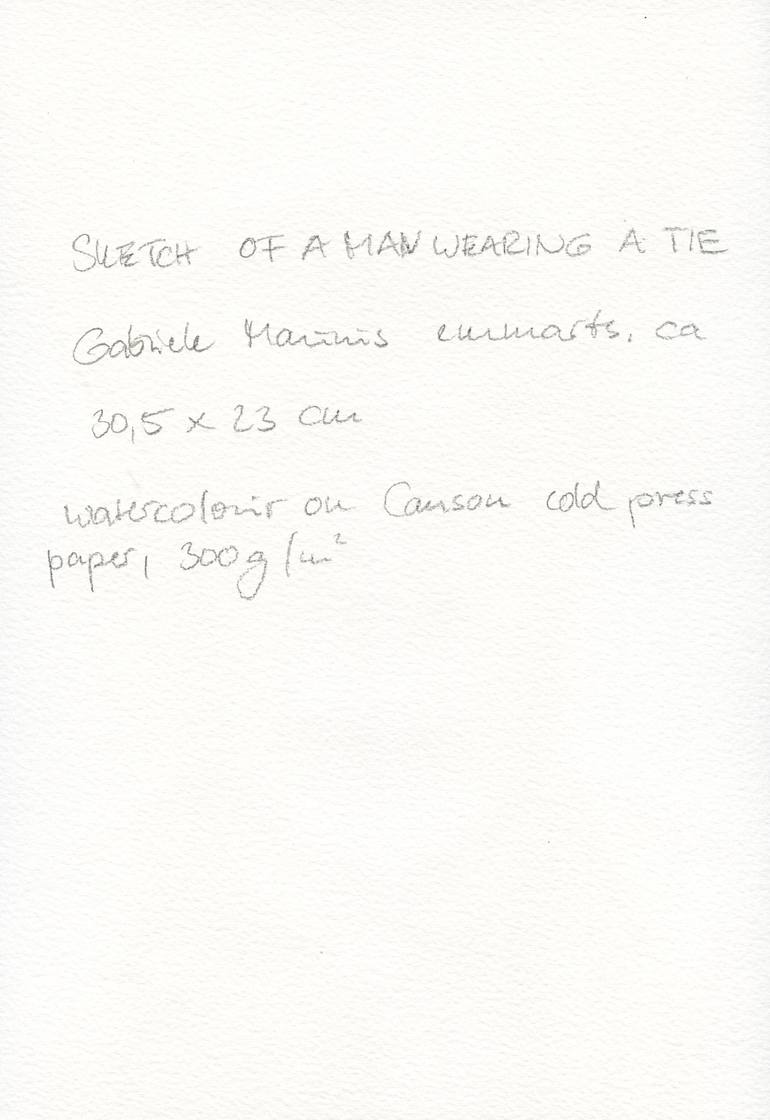 SKETCH OF A MAN WEARING A TIE
Gabriele Maurus emmarts.ca
30,5 x 23 cm
watercolour on Canson cold press
paper, 300g/m²